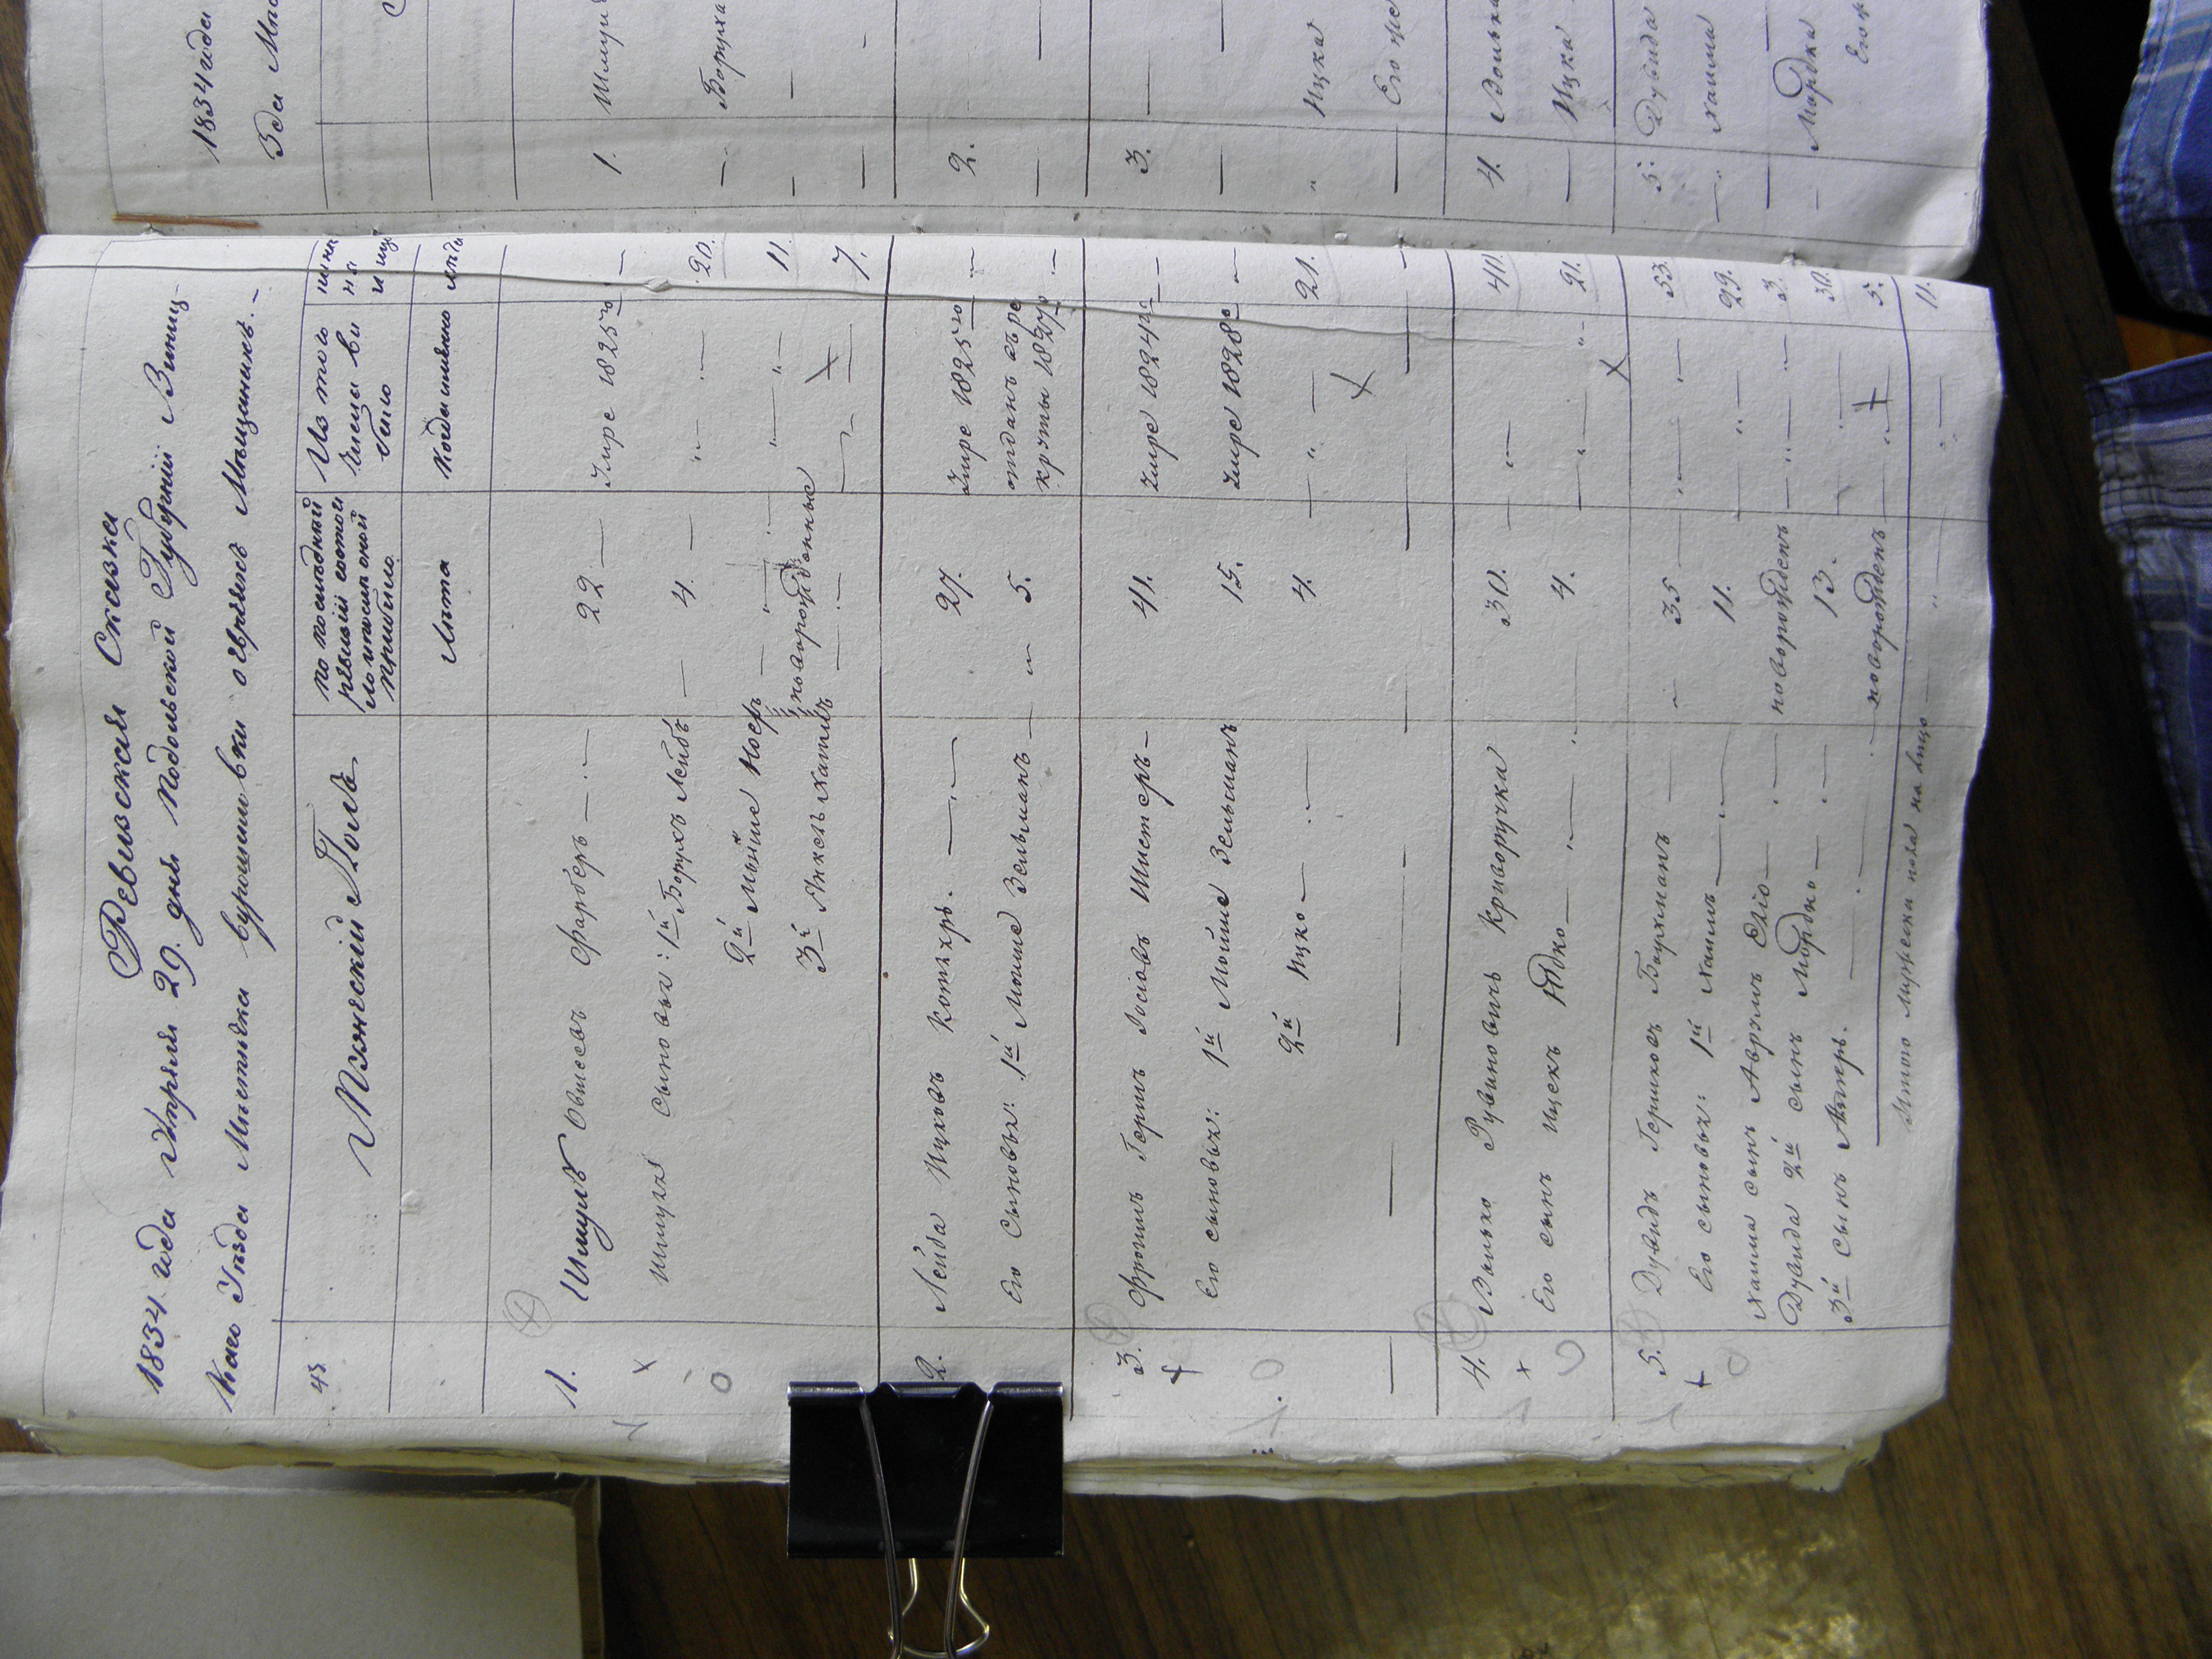 Ревизская Сказка
1834 года Апреля 29. дня Подольской Губерніи Винниц-
каго Уезда Мѣстечка Ворошиловки о евреяхъ Мѣщанинъ.-
Мужескій Полъ
по последней ревизіи состояло и после оной прибыло
Изъ того числа выбыло
ныне на лицо
Лѣта
Когда имянно
лѣта
1. Шмуль Овшеевъ Фарберъ 22 Умре 1825го
Шмуля сыновья: 1й Борухъ Лейбъ 4. 20.
2й Мойше Юсеръ новорожденные 11.
3й Янкель Хаимъ 7.
2. Лейба Ицковъ Котляръ. 27. Умре 1825го
Его сыновья: 1й Мошке Зельманъ 5. отданъ въ рекруты 1827го
3. Фроимъ Гершъ Іосіовъ Шистеръ 41. Умре 1824го
Его сыновья: 1й Мойше Зельманъ 15. Умре 1828го
2й Ицко 4. 21.
4. Волько Рувиновичъ Криворучка 30. 40.
Его сынъ Ицекъ Юдко 4. 21.
5. Дувидъ Гершковъ Бахманъ 35 53.
Его сыновья: 1й Хаимъ 11. 29.
Хаима сынъ Аврумъ Еліо новорожденъ 3.
Дувида 2й сынъ Мордко 13. 30.
3й сынъ Лейзеръ. новорожденъ 5.
Итого мужеска пола на лицо 11.
1834 года
1. Шмуля
Боруха
2.
3.
Ицка
Его же
4. Волька
Ицка
5. Дувида
Хаима
Мордка
Его ж